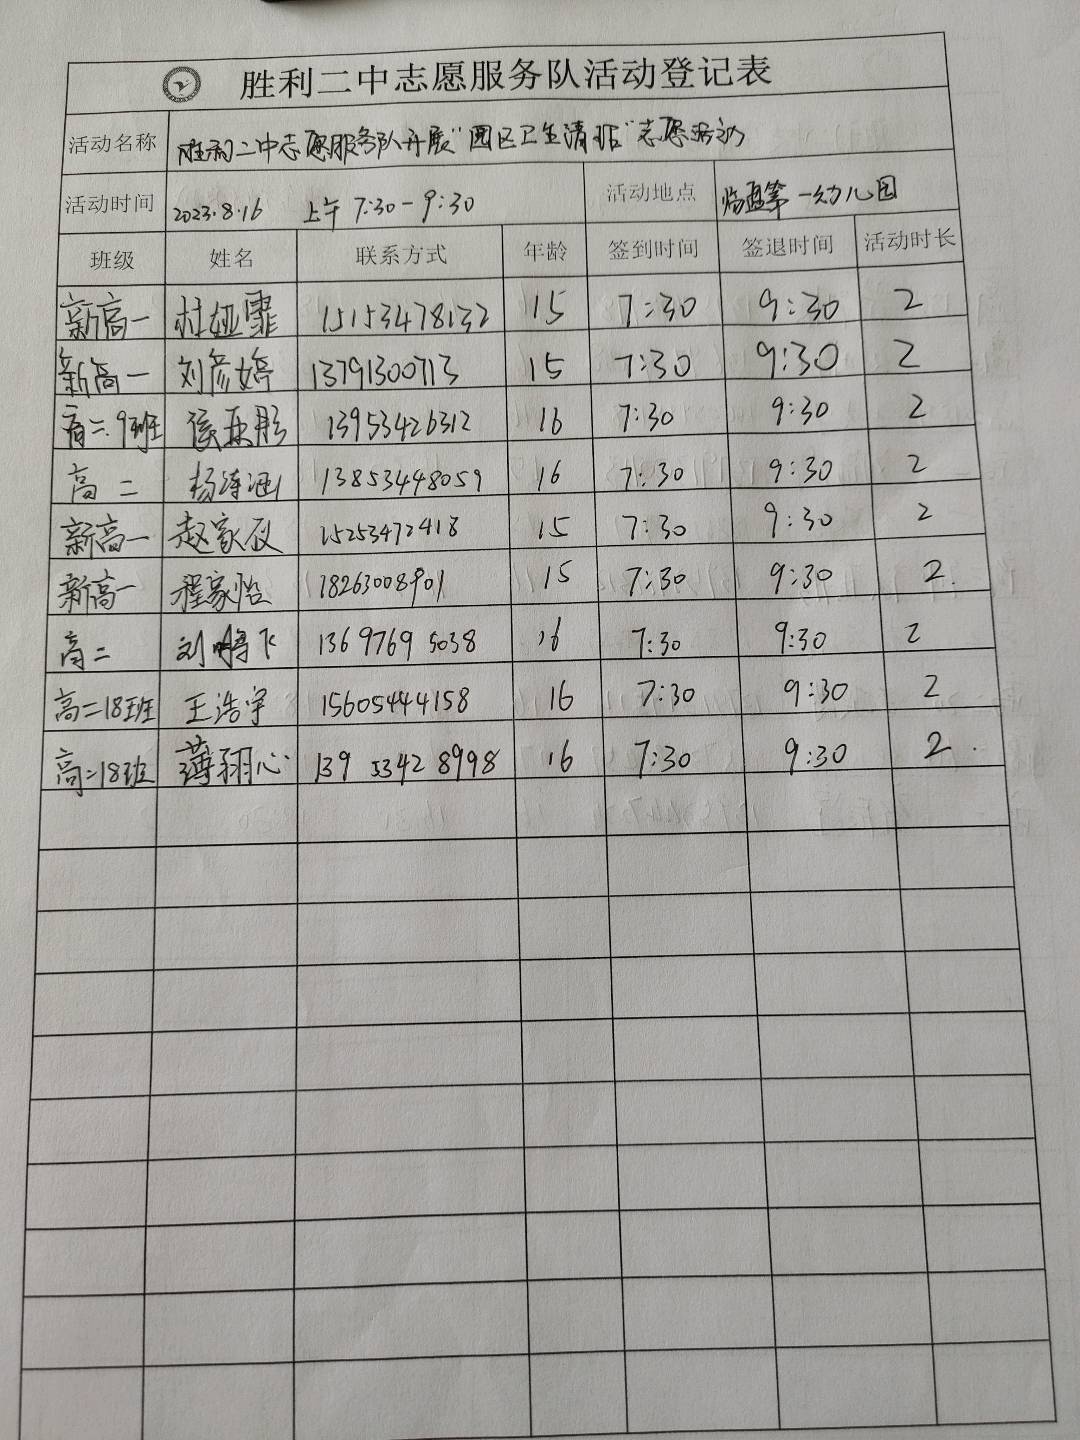 胜利二中志愿服务队活动登记表
活动名称 胜利二中志愿服务队开展"园区卫生清洁"志愿活动
活动时间 2023.8.16 上午 7:30-9:30 活动地点 临盘第一幼儿园
班级 姓名 联系方式 年龄 签到时间 签退时间 活动时长
新高一 杜娅霏 15153478132 15 7:30 9:30 2
新高一 刘彦婷 13791300713 15 7:30 9:30 2
高二.9班 侯乐彤 13953426312 16 7:30 9:30 2
高二 杨涛涵 13853448059 16 7:30 9:30 2
新高一 赵家仪 15253472418 15 7:30 9:30 2
新高一 程家怡 18263008901 15 7:30 9:30 2.
高二 刘鹏飞 136 9769 5038 16 7:30 9:30 2
高二18班 王浩宇 15605444158 16 7:30 9:30 2
高二18班 薄翔心 139 5342 8998 16 7:30 9:30 2.